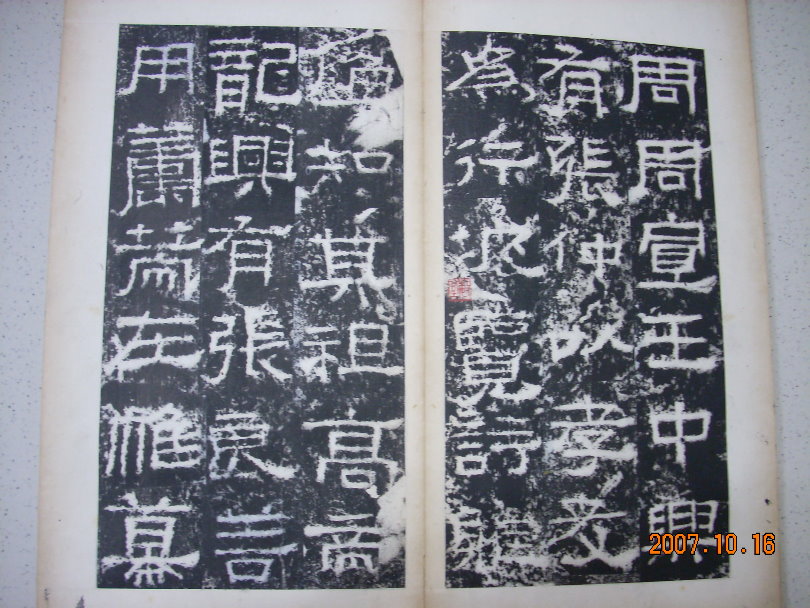 周周宣王中興
有張仲以孝友
為行披覽詩雅
知其祖高帝
龍興有張良善
用籌策在帷幕
2007.10.16